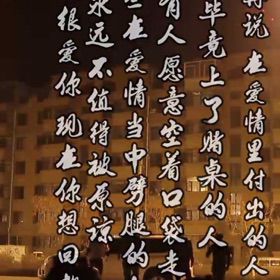 说在爱情里付出的人
毕竟上了赌桌的人
有人愿意空着口袋走
些在爱情当中劈腿的
永远不值得被原谅
很爱你现在你想回